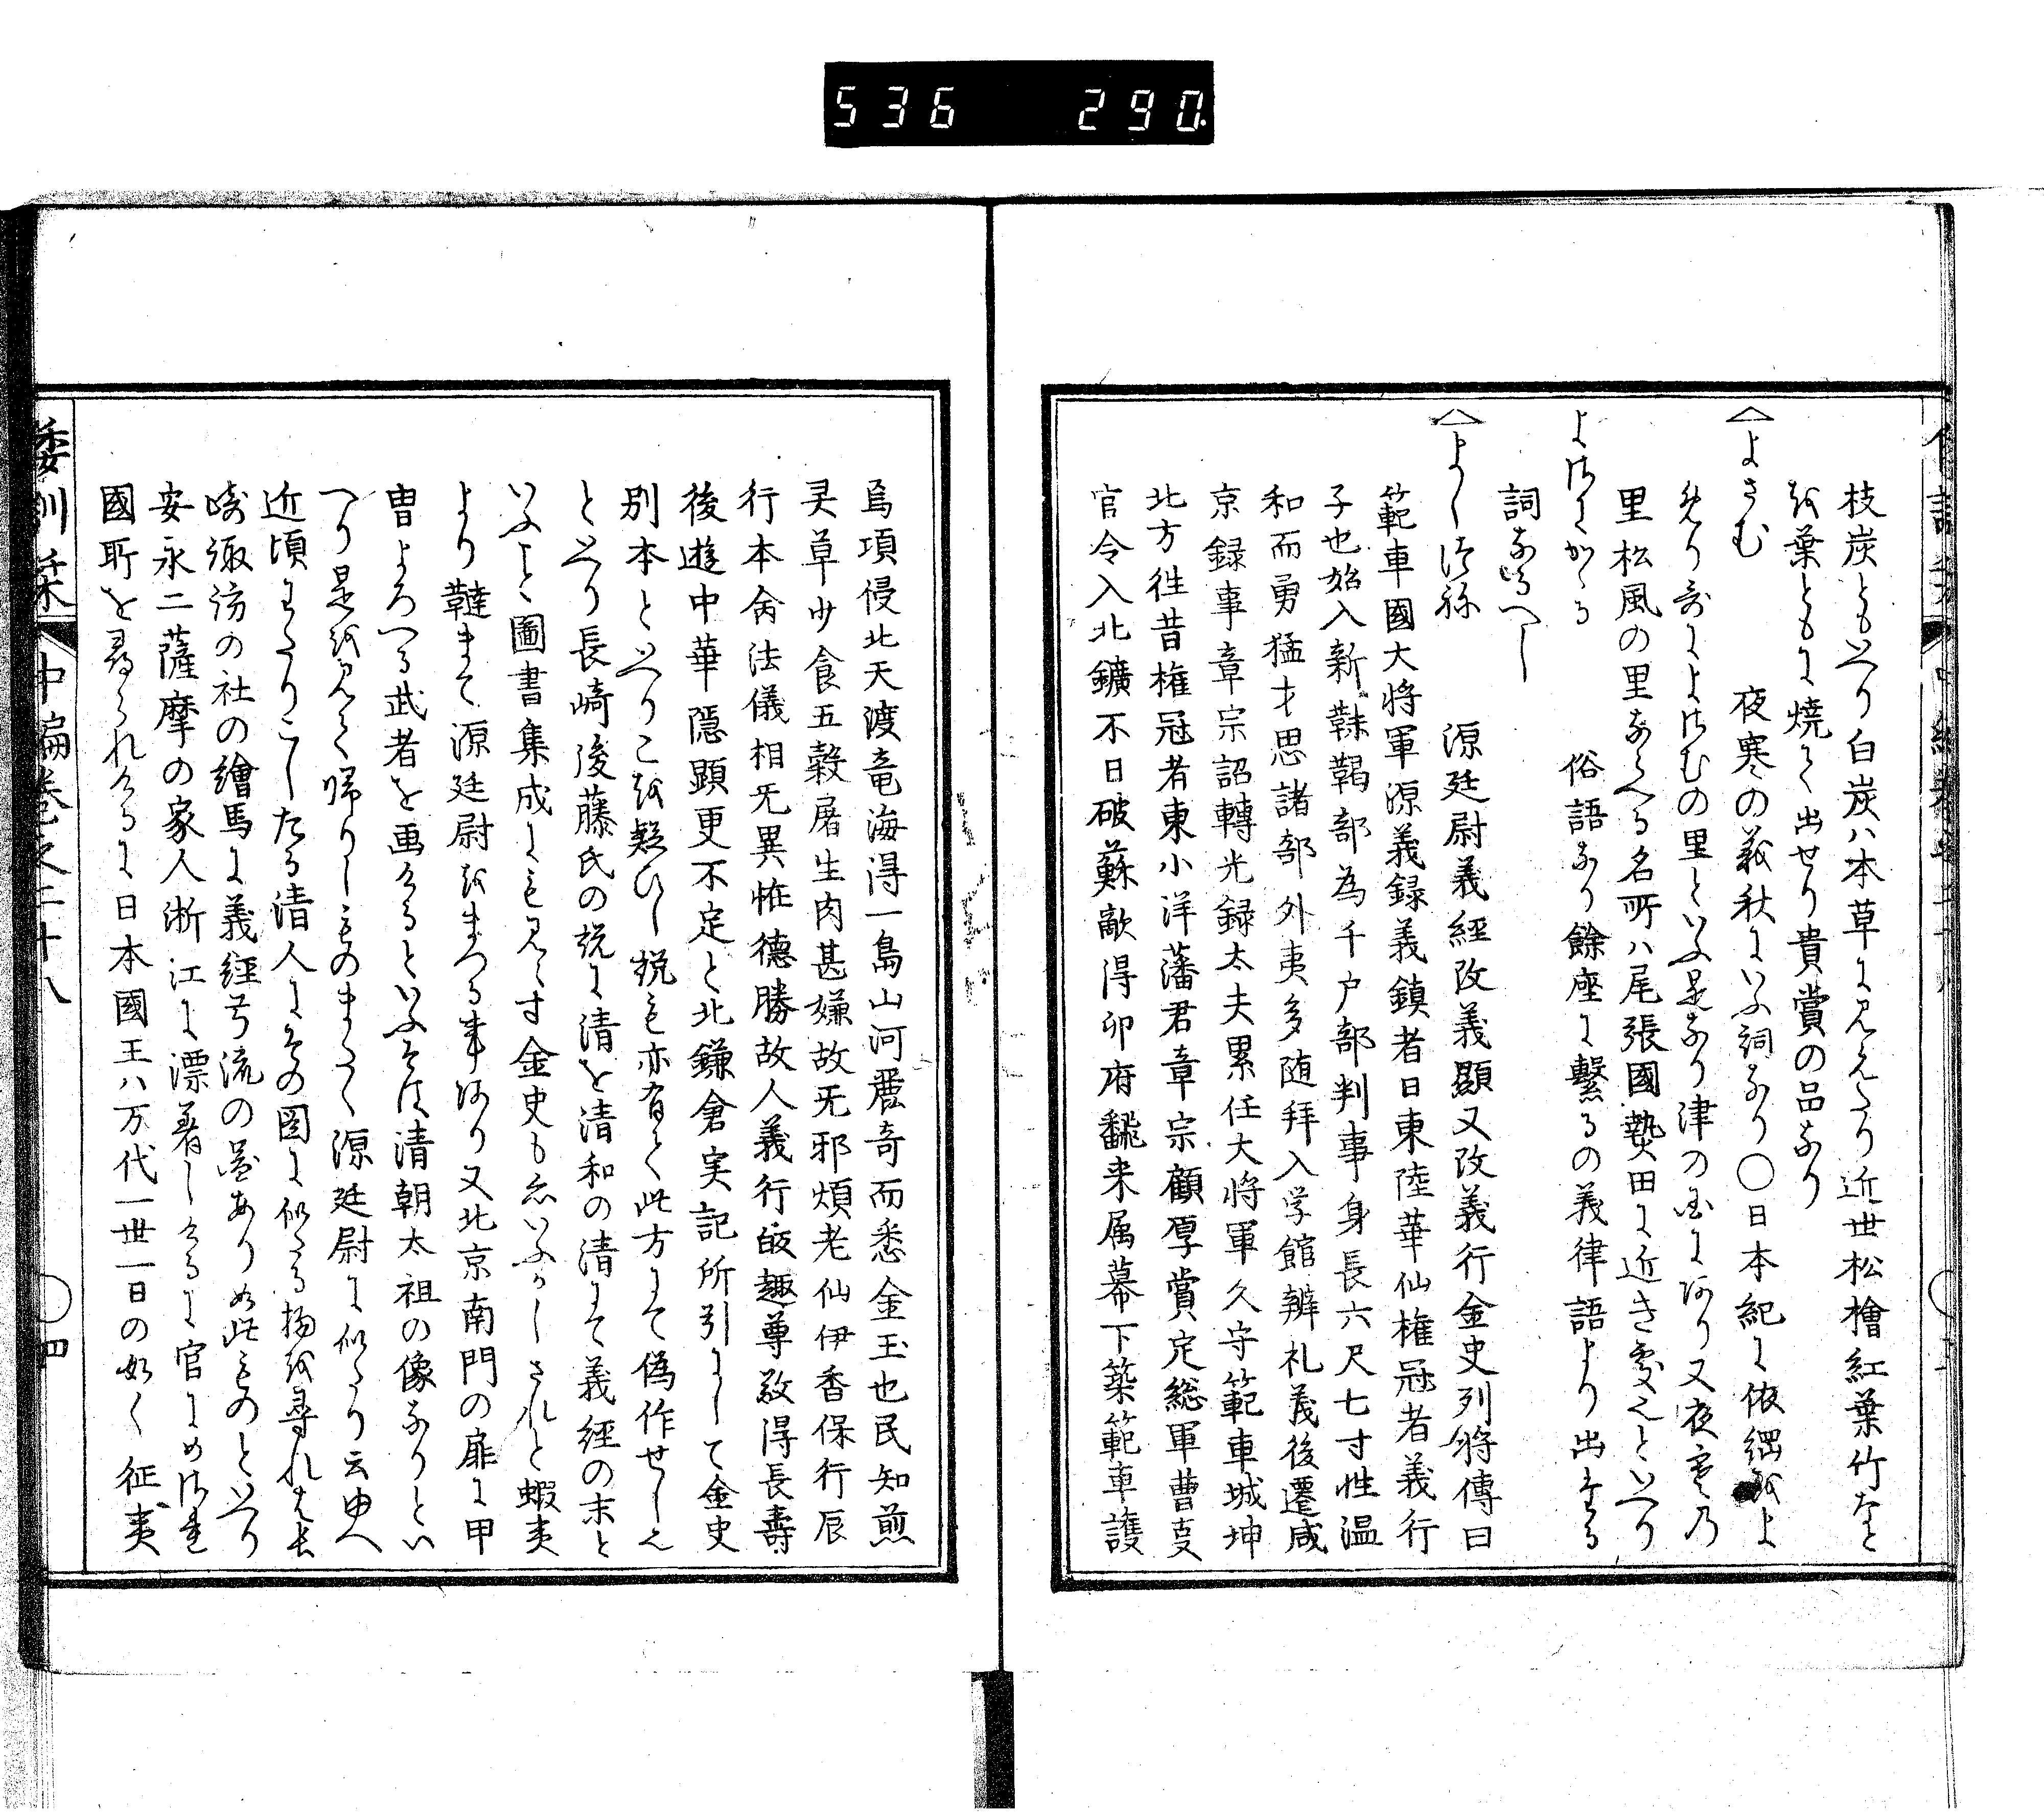 536 290
枝炭ともいへり白炭ハ本草に見えたり近世松檜紅葉竹なと
を葉ともに焼て出せり貴賞の品なり
よさむ 夜寒の義秋にいふ詞なり〇日本紀に依網をよ
さみとよめり
里松風の里ならへる名所ハ尾張國熱田に近き處也といへり
よさにかゝる 俗語なり餘座に繋るの義律語より出たる
詞なるへし
よしつね 源廷尉義経改義顯又改義行金史列将傳曰
範車國大将軍源義録義鎮者日東陸華仙権冠者義行
子也始入新靺鞨部為千戸部判事身長六尺七寸性温
和而勇猛才思諸部外夷多随拜入学館辨礼義後遷咸
京録事章宗詔轉光録太夫累任大将軍久守範車城坤
北方往昔権冠者東小洋藩君章宗顧厚賞定総軍曹支
官令入北鑛不日破蘇敵得卯府飜来属幕下築範車護
烏項侵北天渡竜海得一島山河麗奇而悉金玉也民知煎
灵草少食五穀屠生肉甚嫌故旡邪煩老仙伊香保行辰
行本禽法儀相旡異恠德勝故人義行皈趣尊敬得長壽
後遊中華隠顕更不定と北鎌倉実記所引にして金史
別本といへりこを疑ひし説も亦有て此方にて偽作せし也
といへり長崎後藤氏の説に清を清和の清にて義經の末と
いふよし圖書集成にも見ゆ金史も亦いふかしされと蝦夷
より韃まて源廷尉をまつる事あり又北京南門の扉に甲
冑よろへる武者を画けるといふそは清朝太祖の像なりとい
へり是を見て帰りしものまさしく源廷尉に似たり云伝へ
近頃わたりこしたる清人にその図に似たる物を尋ねれは長
崎諏訪の社の繪馬に義經弓流の圖あり如此ものといへり
安永二薩摩の家人浙江に漂着しけるに官にめされ
國所を尋られけるに日本國王ハ万代一世一日の如く征夷
倭訓栞 中編巻之二十八 四